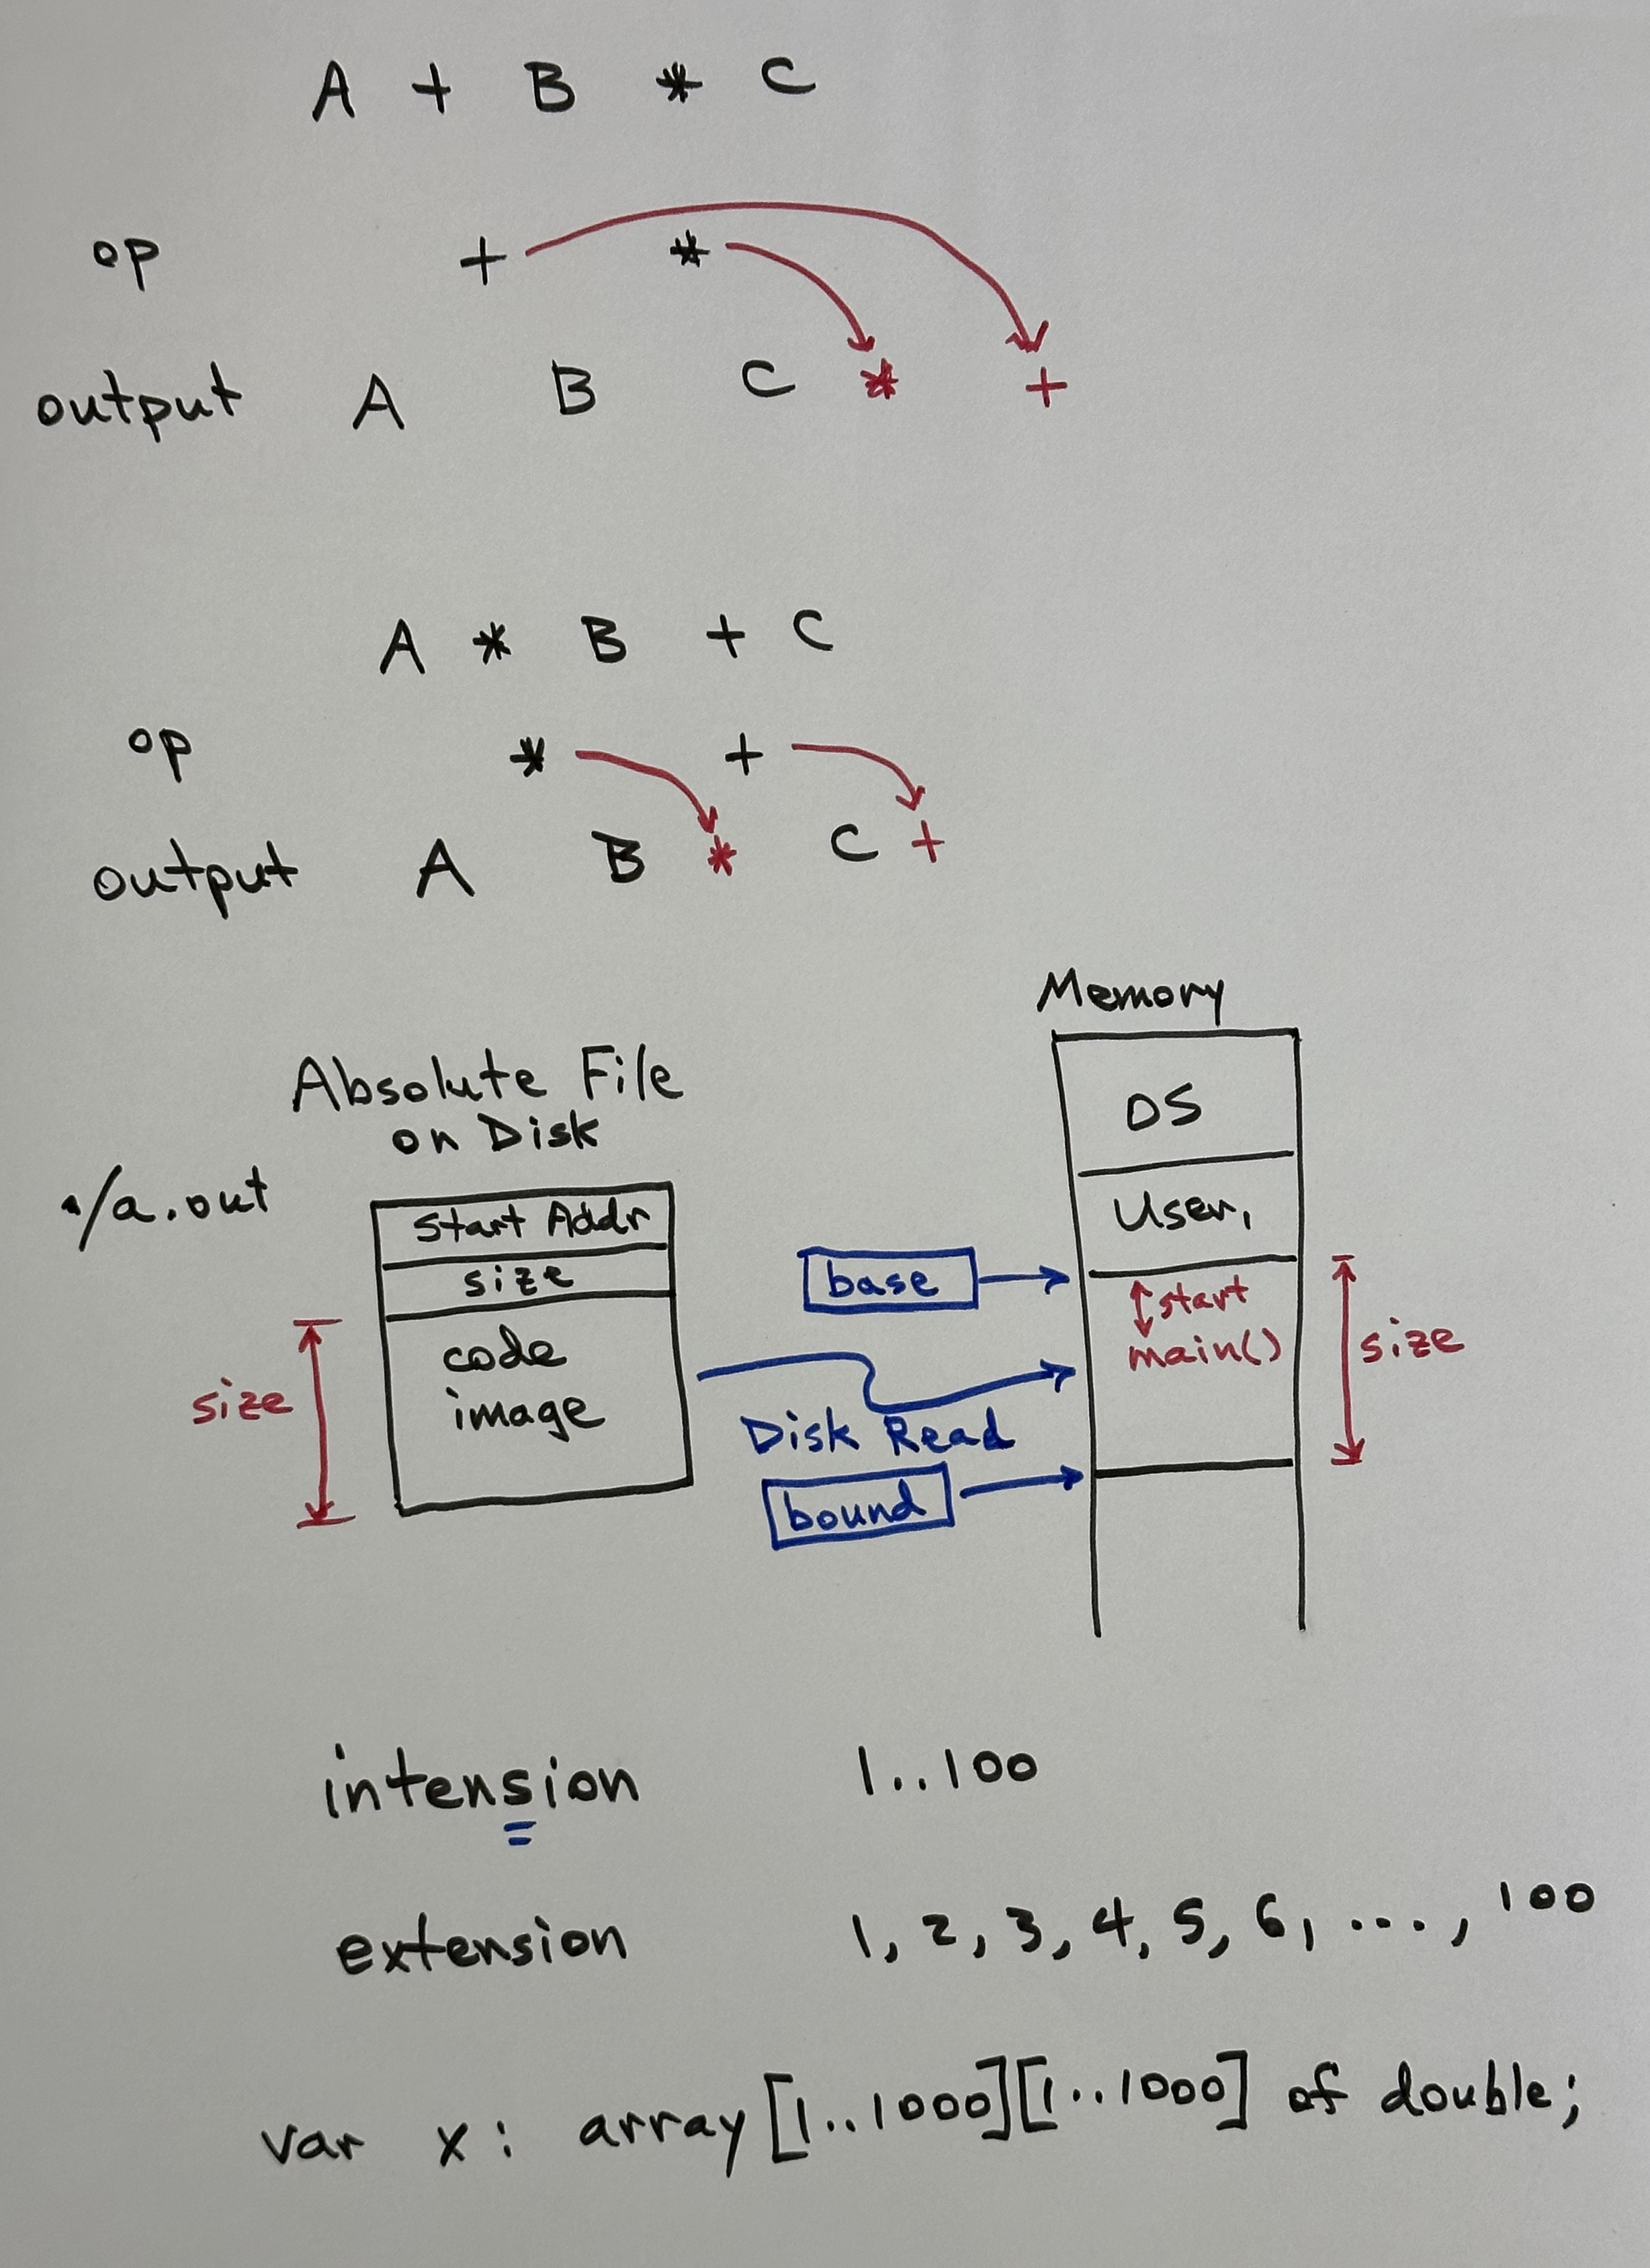 A + B * C
op + *
output A B C * +
A * B + C
op * +
output A B * C +
Memory
Absolute File
on Disk
OS
./a.out
Start Addr
User₁
size
base
start
main()
size
code
image
size
Disk Read
bound
intension 1..100
extension 1, 2, 3, 4, 5, 6, ..., 100
var x: array[1..1000][1..1000] of double;